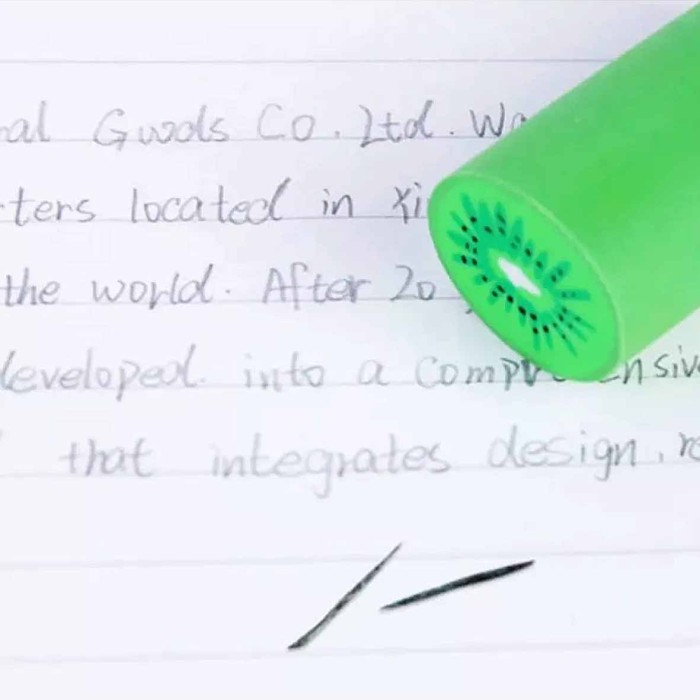 al Goods Co. Ltd. Wa
ters located in Xi
the world. After 20
developed into a compr nsiv
that integrates design, re